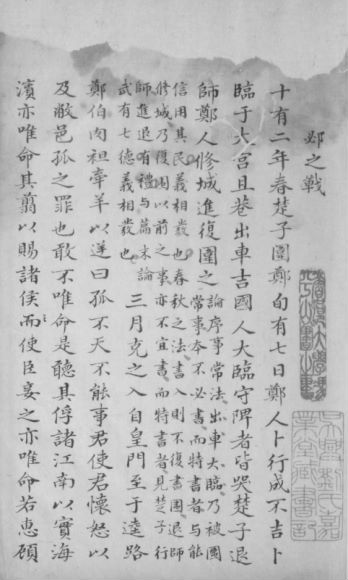 邲之戰
十有二年春楚子圍鄭旬有七日鄭人卜行成不吉卜
臨于大宮且巷出車吉國人大臨守陴者皆哭楚子退
師鄭人脩城進復圍之
論序事常法出車大臨乃被圍
常事本不必書而特書者與能
信用其民義相發也春秋之法書入則不復書圍退師
修城乃復圍以前之事亦不宜書而特書者見楚子行
師進退有禮與篇末論
武有七德義相發也
三月克之入自皇門至于逵路
鄭伯肉袒牽羊以逆曰孤不天不能事君使君懷怒以
及敝邑孤之罪也敢不唯命是聽其俘諸江南以實海
濱亦唯命其翦以賜諸侯而使臣妾之亦唯命若惠顧
吳興劉氏嘉
業堂藏書記